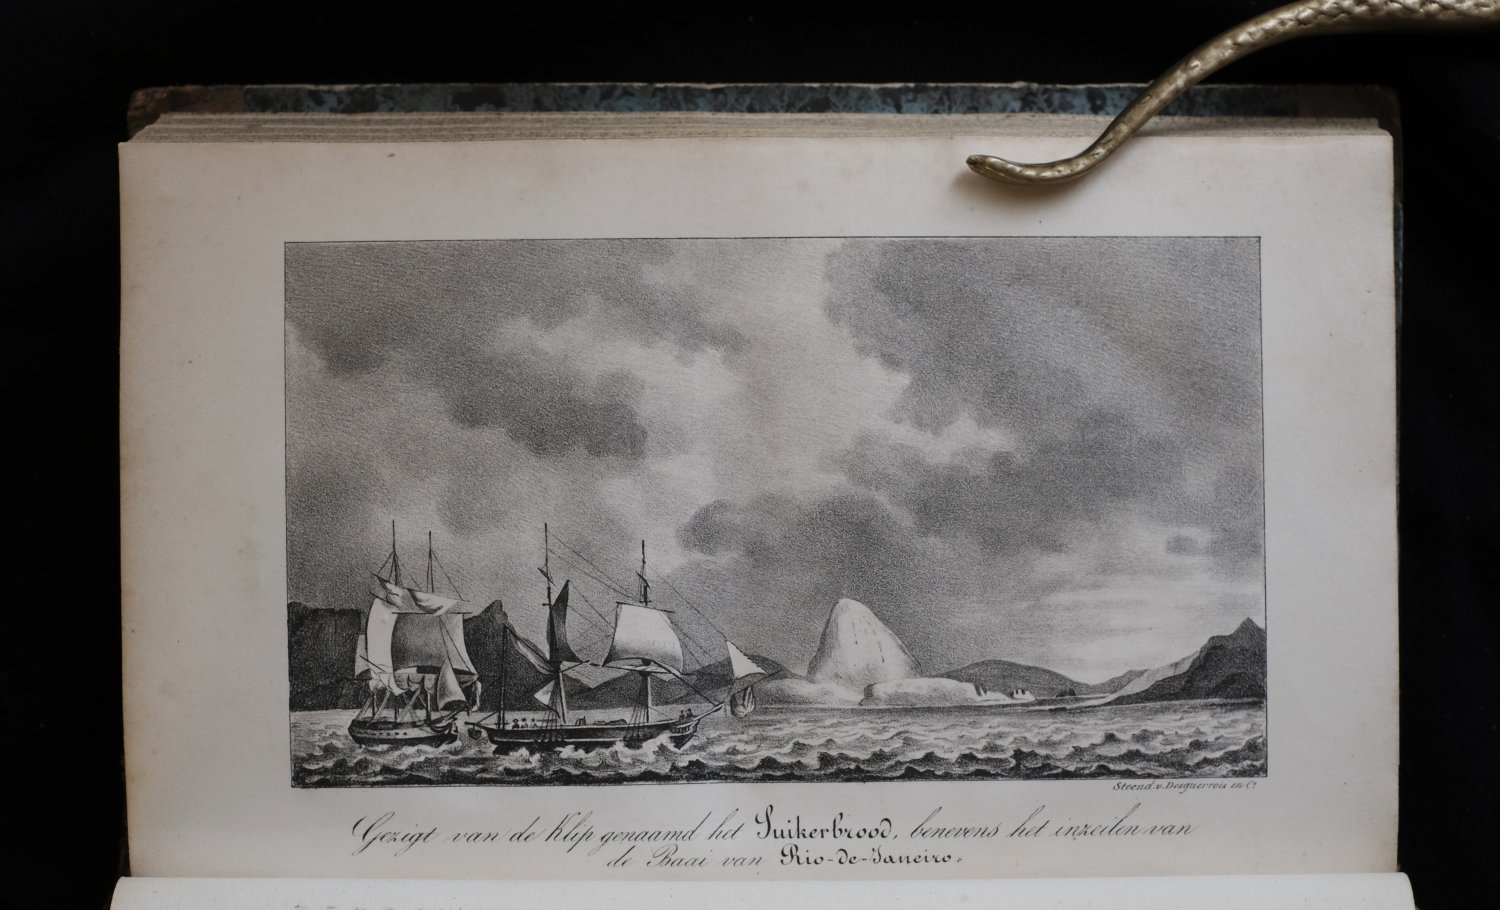 Steend. v. Desguerrois en Co.
Gezigt van de Klip genaamd het Suikerbrood, benevens het inzeilen van
de Baai van Rio-de-Janeiro.